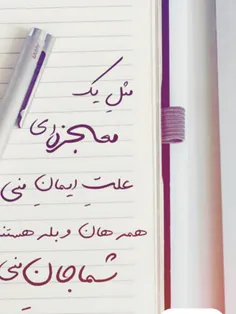 مثلِ یک
معجزه‌ای
علتِ ایمانِ منی
همه هان و بله هستند
شما جانِ منی